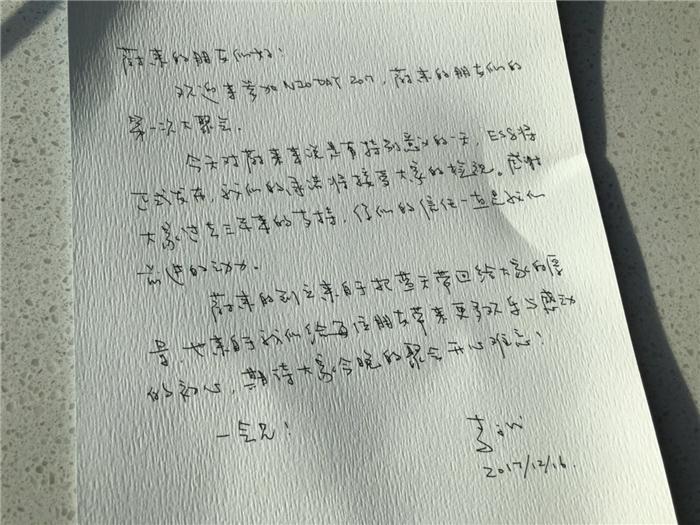 蔚来的朋友们好:
欢迎来参加NIO DAY 2017, 蔚来的朋友们的
第一次大聚会.
今天对蔚来来说是有特别意义的一天, ES8将
正式发布, 我们的承诺将接受大家的检视。感谢
大家过去三年来的支持, 你们的信任一直是我们
前进的动力.
蔚来的创立来自于把蓝天带回给大家的愿
景, 也来自于我们给每位朋友带来更多欢乐与
的初心, 期待大家今晚的聚会开心难忘!
一会见!
李
2017/12/16.